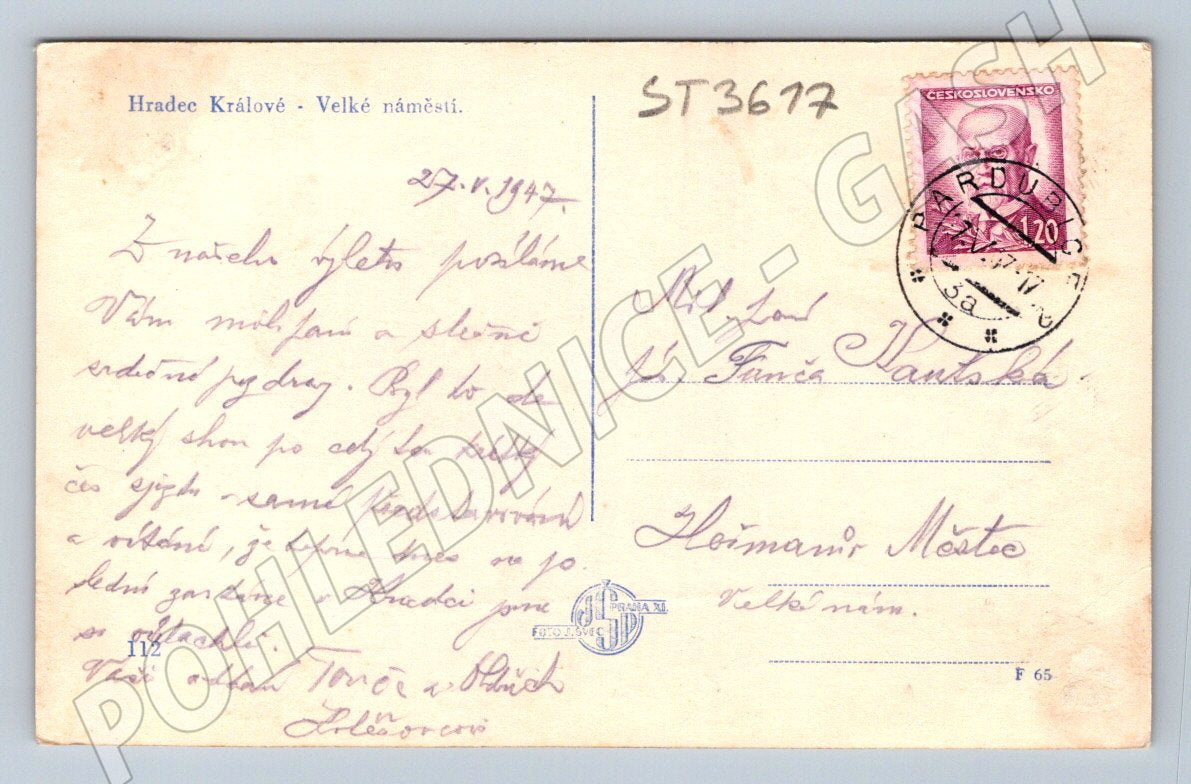 Hradec Králové - Velké náměstí.
ST3617
ČESKOSLOVENSKO
1.20
PARDUBICE
3a
27.V.1947.
Z našeho výletu posíláme
Vám milí paní a slečně
srdečné pozdravy. Byl to
velký shon po celý ten krátký
čas sjezdu - samé
a vítání, je teprve dnes na po-
lední v Hradci jsme
si oddechli.
Vaši oddaní Tonča a Oldřich
Mil. paní
Fanča Kautská
Heřmanův Městec
Velké nám.
FOTO J. ŠVEC
PRAHA XI.
112
F 65
POHLEDNICE - GASH